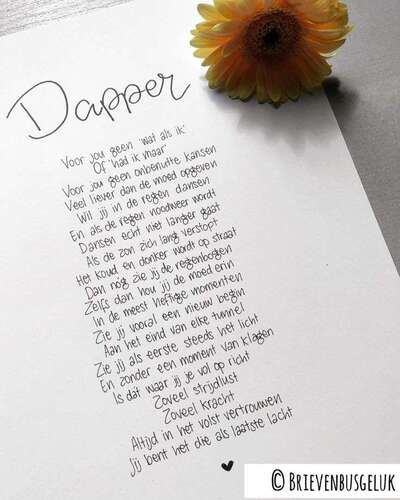 Dapper
Voor jou geen 'wat als ik'
Of 'had ik maar'
Voor jou geen onbenutte kansen
Veel liever dan de moed opgeven
Wil jij in de regen dansen
En als de regen noodweer wordt
Dansen echt niet langer gaat
Als de zon zich lang verstopt
Het koud en donker wordt op straat
Dan nóg zie jij de regenbogen
Zelfs dan hou jij de moed erin
In de meest heftige momenten
Zie jij vooral een nieuw begin
Aan het eind van elke tunnel
Zie jij als eerste steeds het licht
En zonder een moment van klagen
Is dát waar jij je vol op richt
Zoveel strijdlust
Zoveel kracht
Altijd in het volst vertrouwen
Jij bent het die als laatste lacht
© BRIEVENBUSGELUK